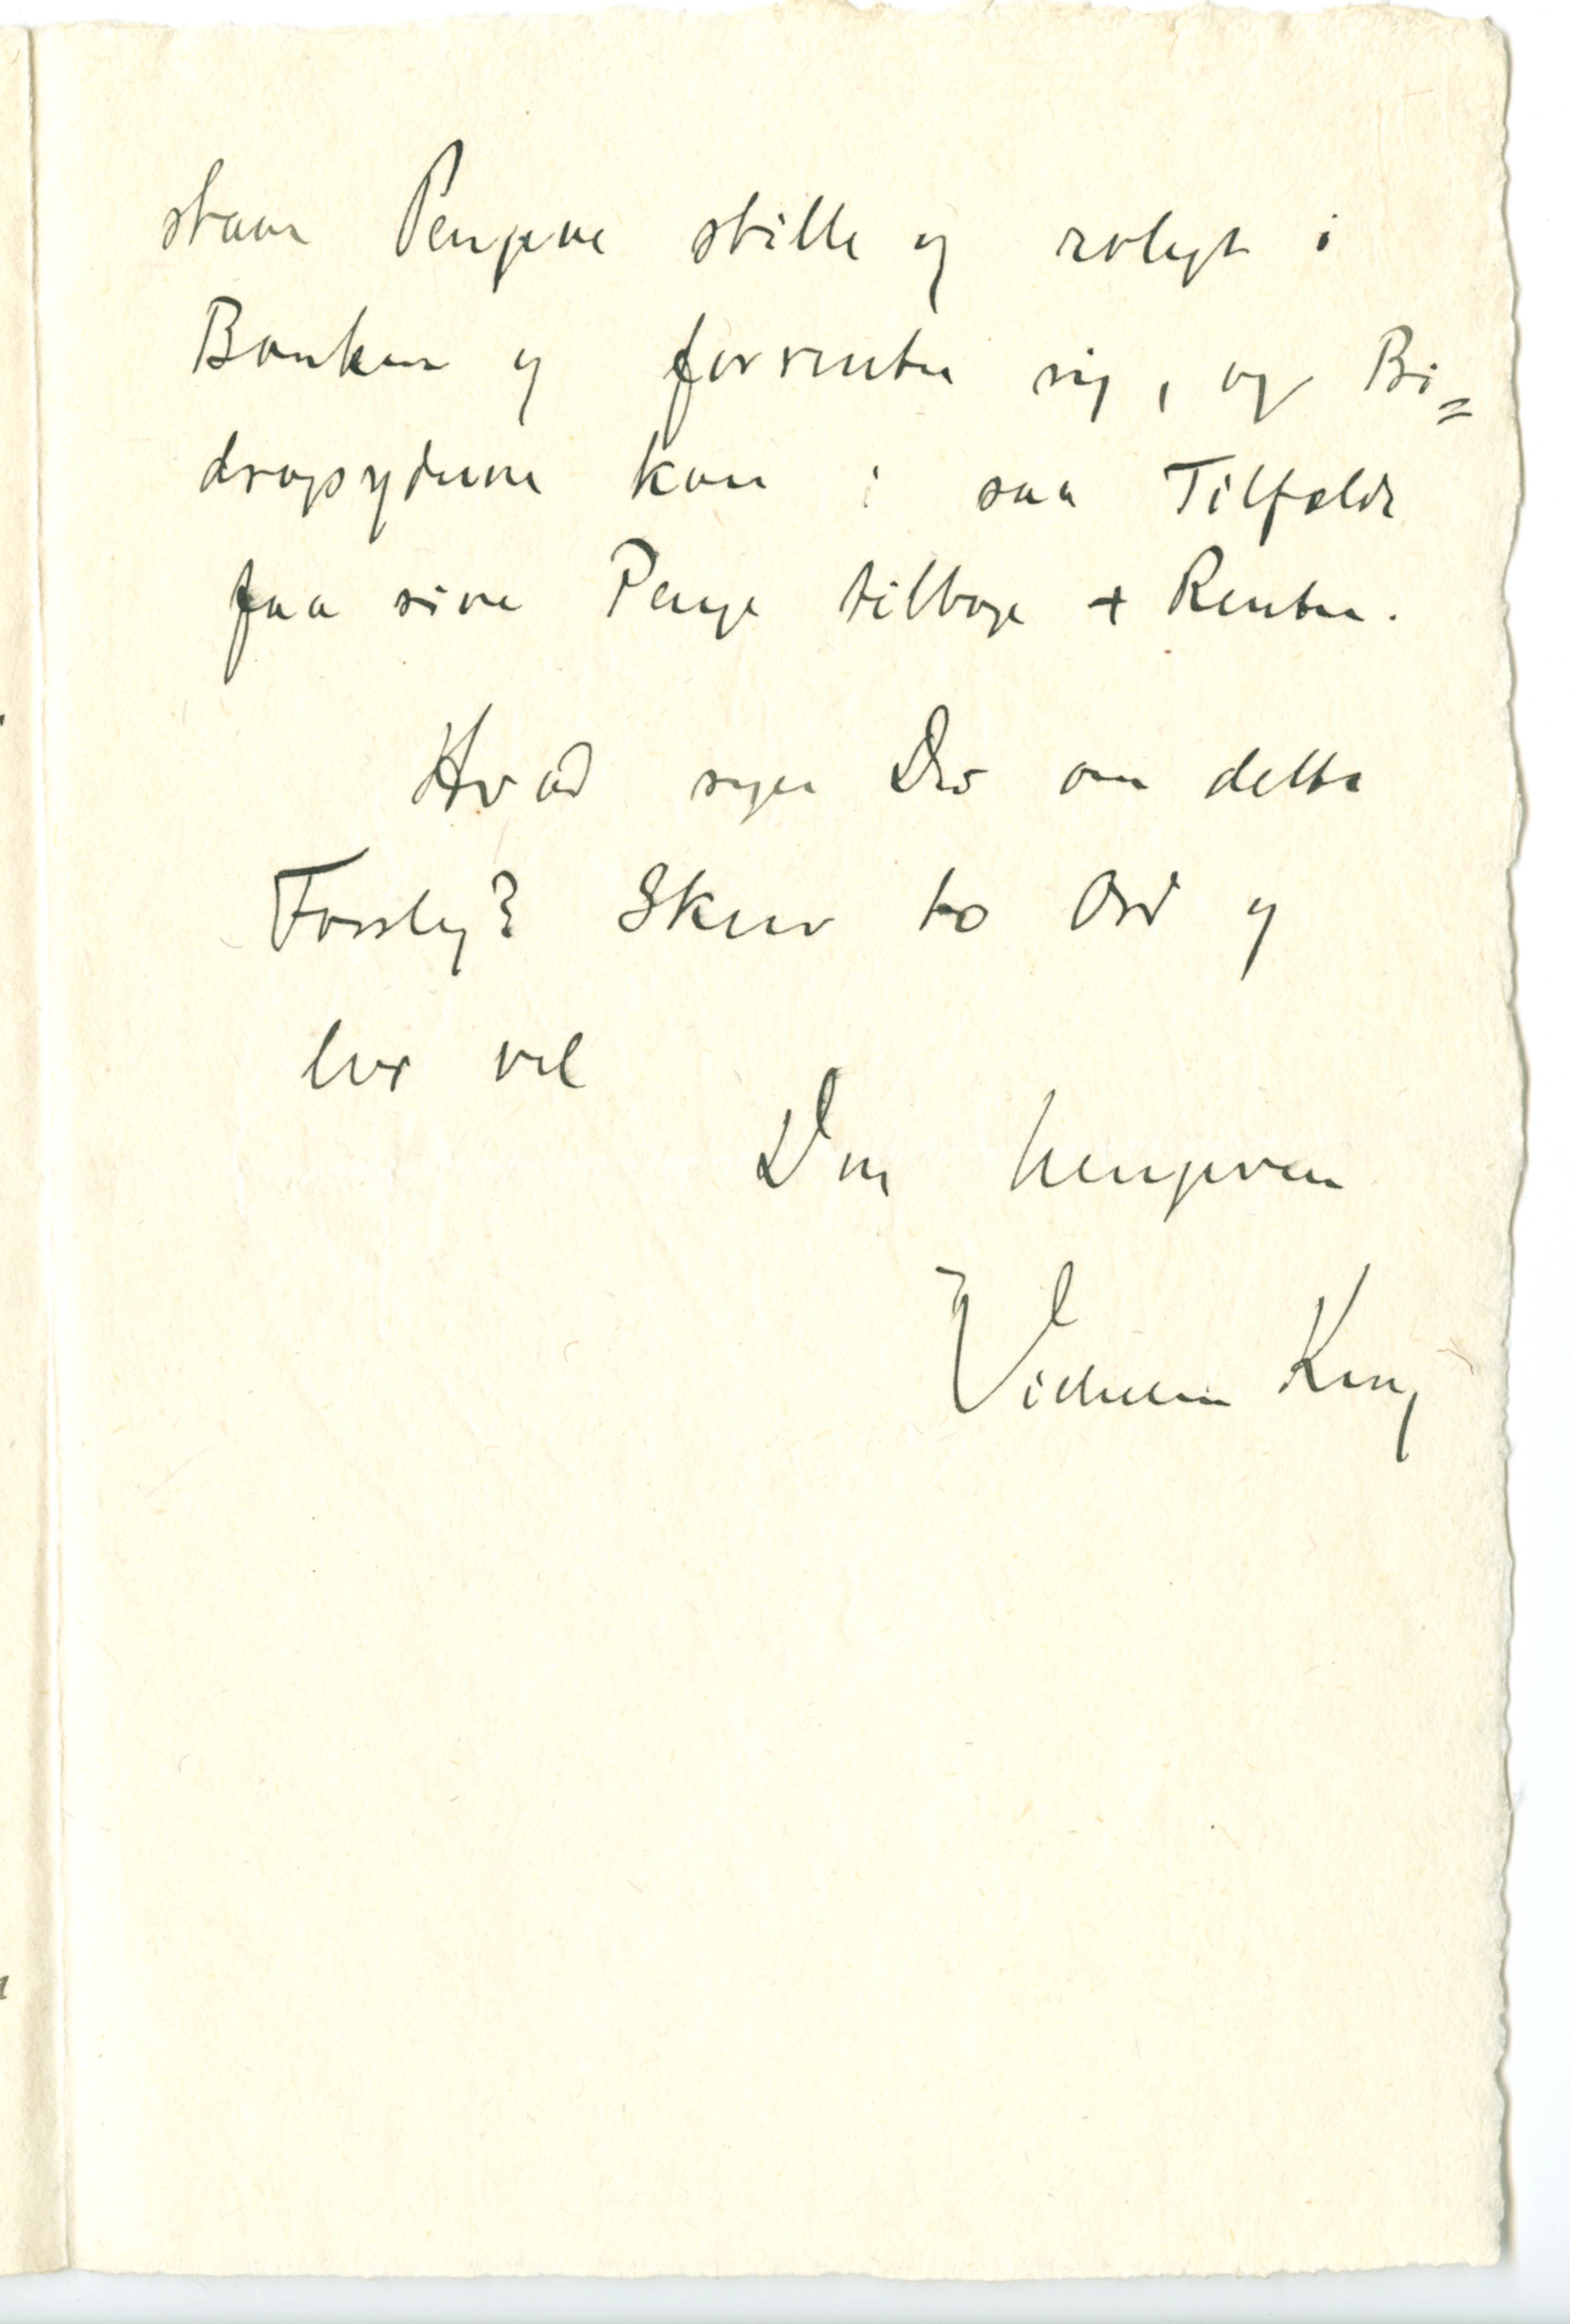 staar Pengene stille og roligt i
Banken og forrenter sig, og Bi=
dragsyderne kan i saa Tilfælde
faa sine Penge tilbage + Renter.
Hvad siger De om dette
Forslag? Skriv to Ord og
lev vel
Din hengivne
Vilhelm Krag